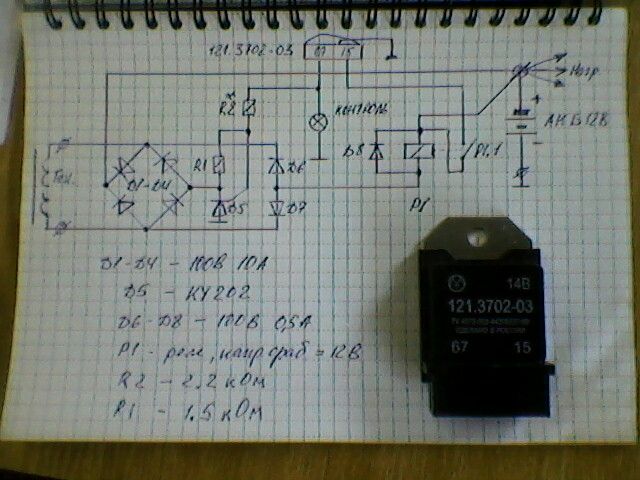 121.3702-03 67 15
Нагр
R2
контроль
+
АКБ 12В
-
Ген.
Д1-Д4
R1
Д5
Д6
Д7
Д8
P1.1
P1
Д1-Д4 - 100В 10А
Д5 - КУ202
Д6-Д8 - 100В 0,5А
P1 - реле, напр сраб = 12В
R2 - 2.2 кОм
P1 - 1.5 кОм
14В
121.3702-03
СДЕЛАНО В РОССИИ
67 15